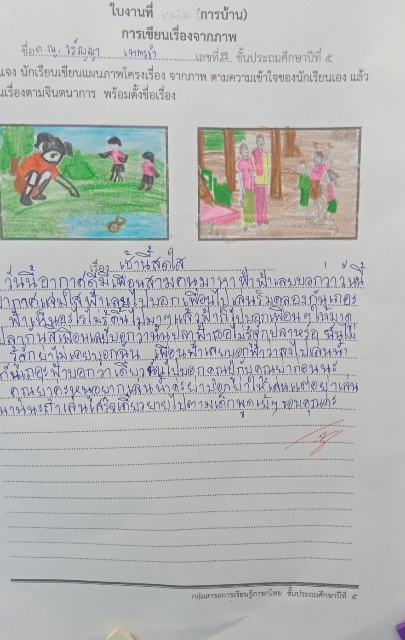 ใบงานที่ (การบ้าน)
การเขียนเรื่องจากภาพ
ชื่อ ด.ญ. วรัญญา เลขที่ 22 ชั้นประถมศึกษาปีที่ ๕
แจง นักเรียนเขียนแผนภาพโครงเรื่อง จากภาพ ตามความเข้าใจของนักเรียนเอง แล้ว
นเรื่องตามจินตนาการ พร้อมตั้งชื่อเรื่อง
เรื่อง เช้านี้สดใส
วันนี้อากาศดีมีเพื่อนสามคนมาหาฟ้าฟ้าเลยบอกว่าวันนี้
อากาศแจ่มใสฟ้าเลยไปบอกเพื่อนไปเล่นริมคลองกันเถอะ
ฟ้าเห็นอะไรไม่รู้ดิ้นไปมาๆแล้วฟ้าก็ไปบอกเพื่อนๆให้มาดู
ปลากันสิเพื่อนเลยบอกว่านั่นปลาฟ้าเธอไม่รู้จักปลาหรอ ฉันไม่
รู้จักยาไม่เคยบอกฉัน เพื่อนฟ้าเลยบอกฟ้าว่าลงไปเล่นน้ำ
กันเถอะฟ้าบอกว่าเดี๋ยวฉันไปบอกคุณปู่กับคุณย่าก่อนนะ
คุณยาคะหนูอยากเล่นน้ำค่ะยาบอกว่าให้เล่นแต่อย่าเล่น
นานนะถ้าเล่นเสร็จเดี๋ยวยายไปตามเด็กพูดเย้ๆขอบคุณค่ะ
กลุ่มสาระการเรียนรู้ภาษาไทย ชั้นประถมศึกษาปีที่ ๕